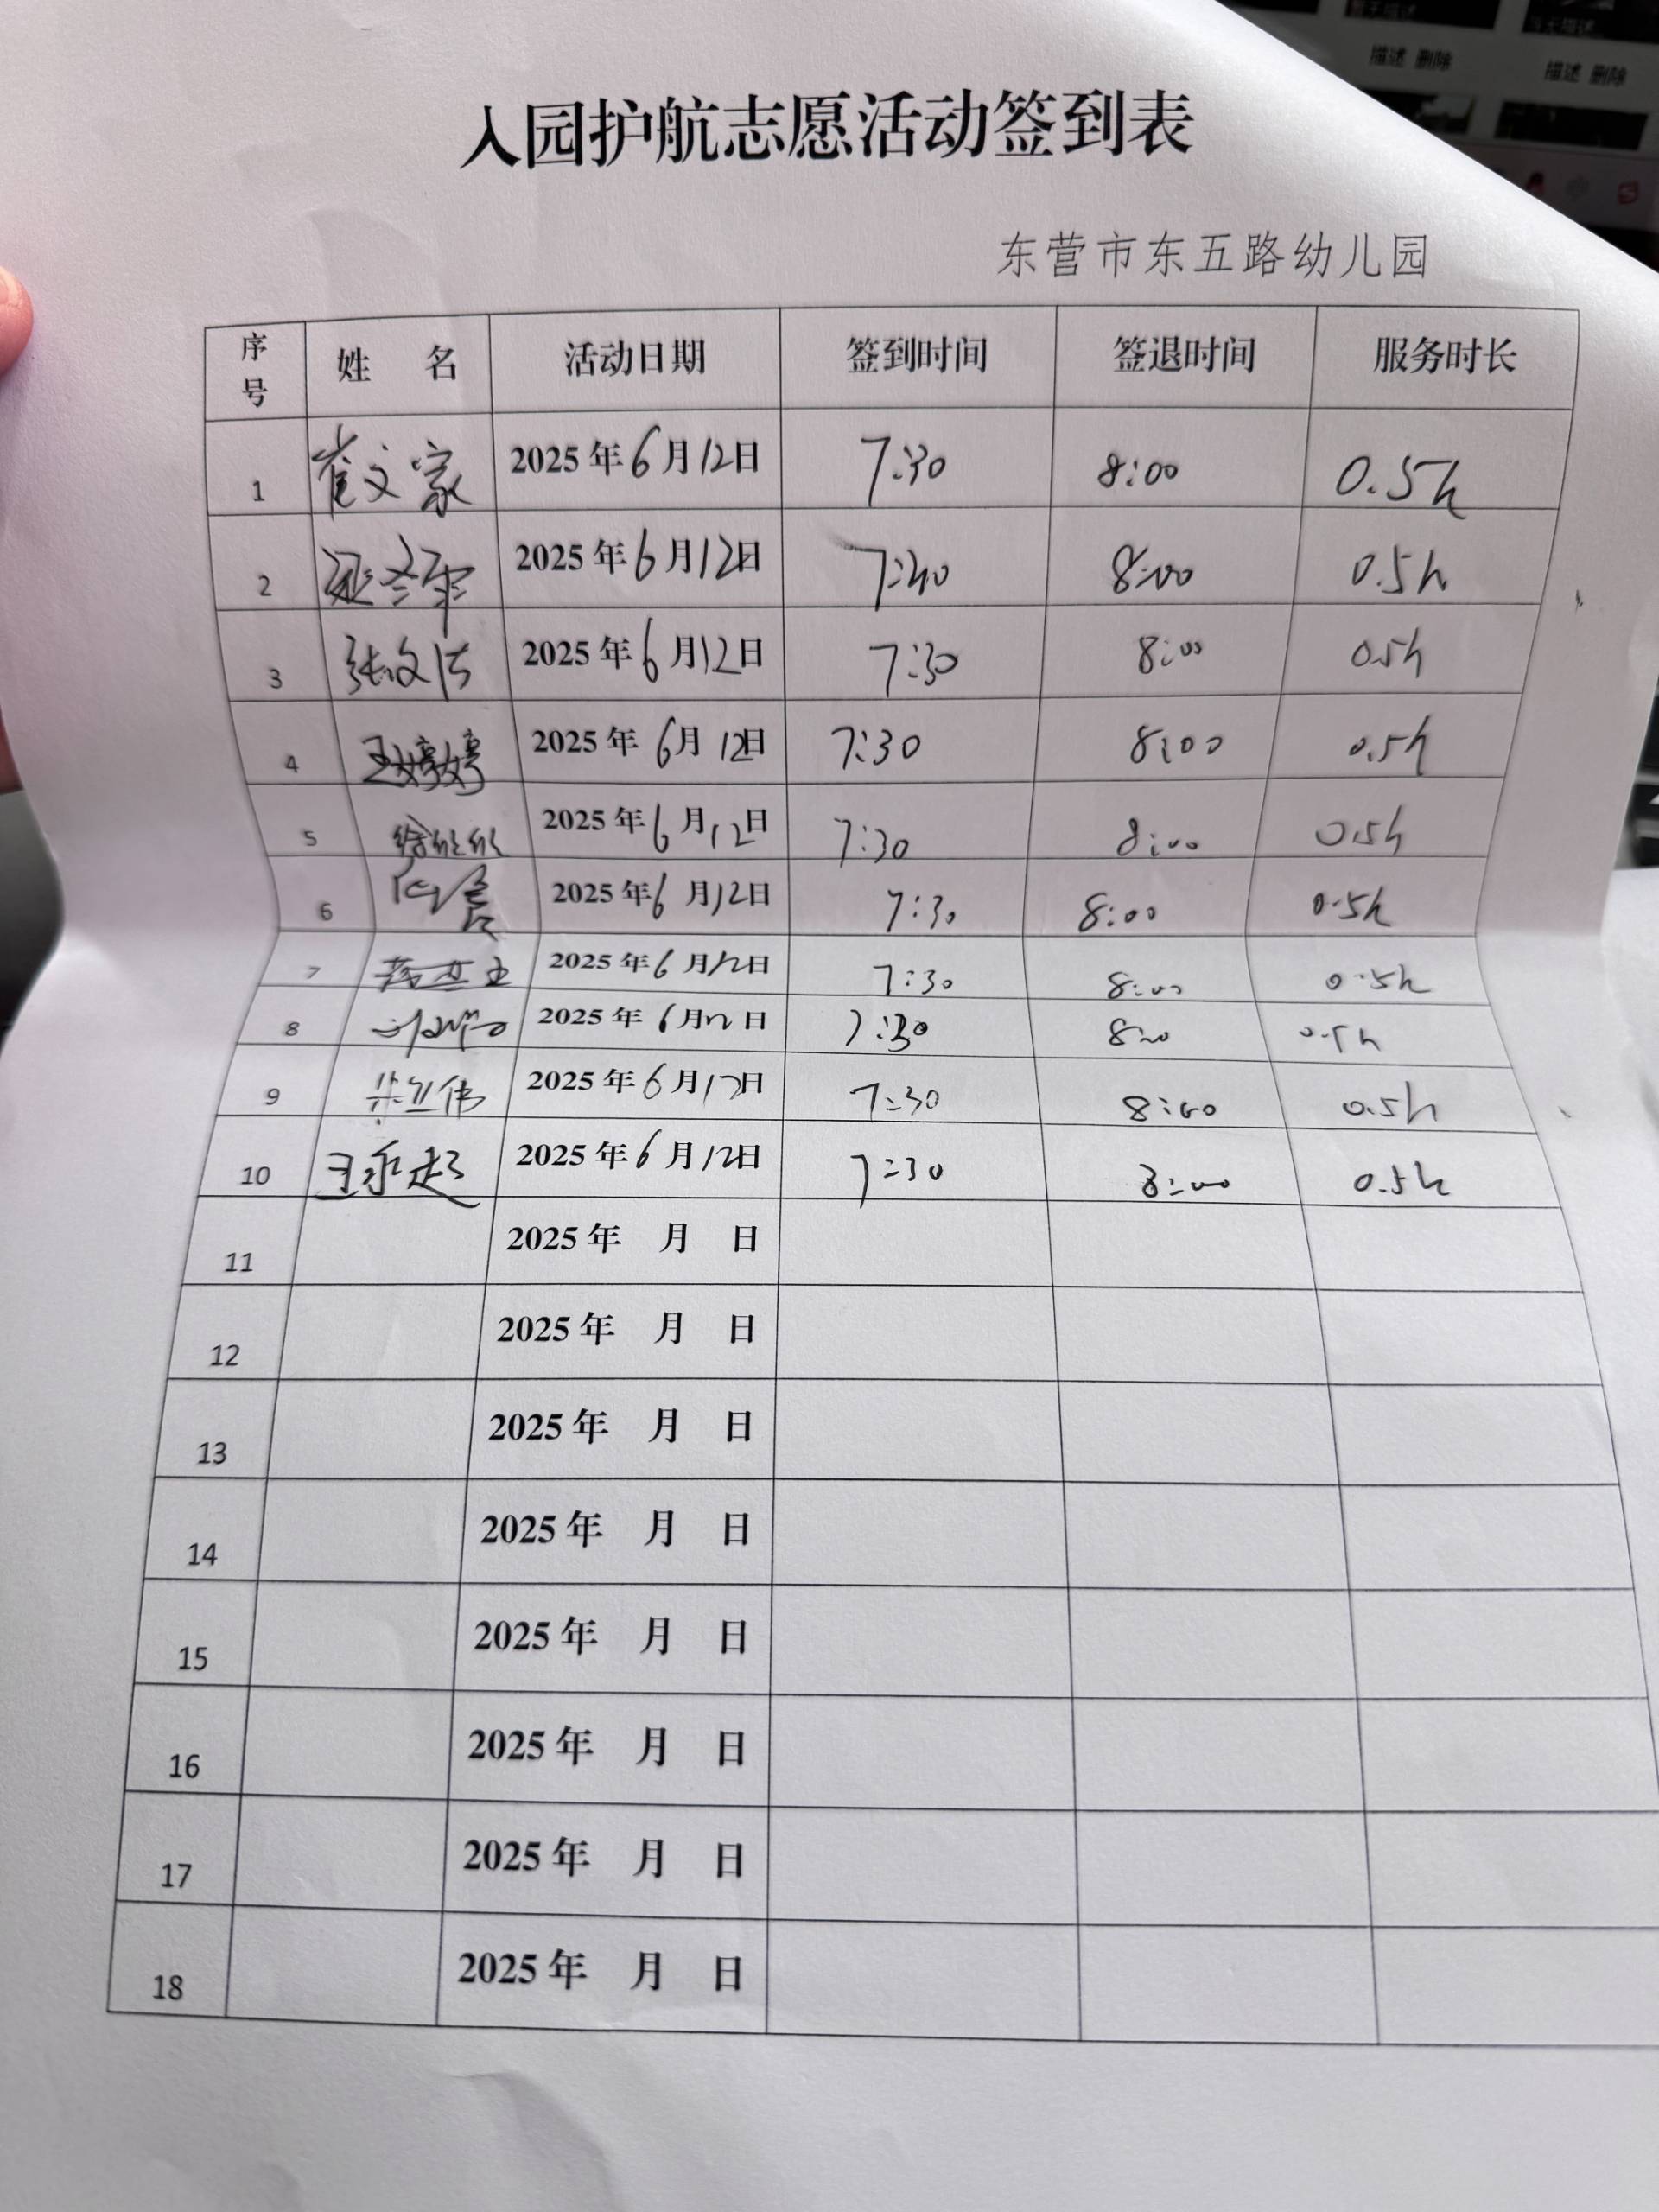 描述 删除
描述 删除
入园护航志愿活动签到表
东营市东五路幼儿园
序号 姓 名 活动日期 签到时间 签退时间 服务时长
1 崔文家 2025年6月12日 7:30 8:00 0.5h
2 2025年6月12日 7:40 8:00 0.5h
3 张文洁 2025年6月12日 7:30 8:00 0.5h
4 王婷婷 2025年6月12日 7:30 8:00 0.5h
5 徐欣欣 2025年6月12日 7:30 8:00 0.5h
6 2025年6月12日 7:30 8:00 0.5h
7 2025年6月12日 7:30 8:00 0.5h
8 2025年6月12日 7:30 8:00 0.5h
9 2025年6月12日 7:30 8:00 0.5h
10 王永起 2025年6月12日 7:30 8:00 0.5h
11 2025年 月 日
12 2025年 月 日
13 2025年 月 日
14 2025年 月 日
15 2025年 月 日
16 2025年 月 日
17 2025年 月 日
18 2025年 月 日